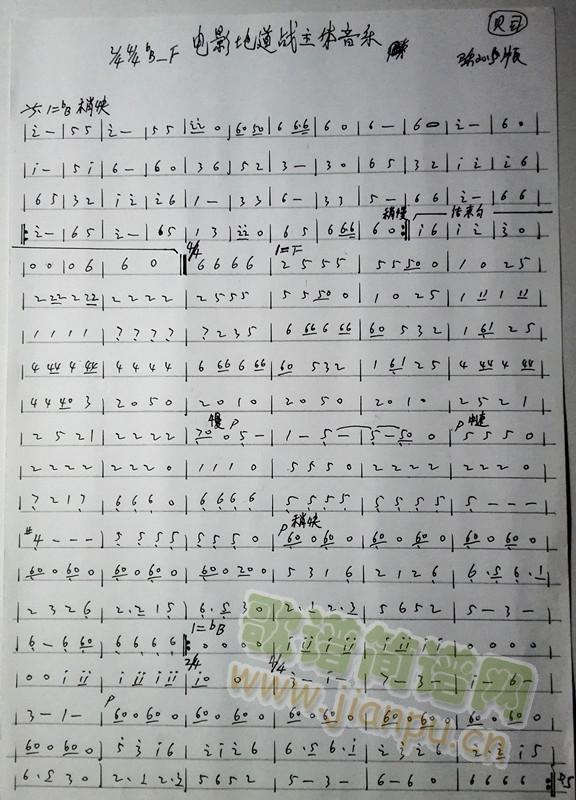 2/4 4/4 ♭B—F 电影地道战主体音乐 贝司
1=♭B 稍快
| i - | 5 5 | i - | 5 5 | i i 0 | 6 0 5 0 | 6 6·6 | 6 0 | 6 - | 6 0 | i - | 6 0 |
| i - | 5 i | 6 - | 6 0 | 3 6 | 5 2 | 3 - | 3 0 | 6 5 | 3 2 | i i | i 6 |
| 6 5 | 3 2 | i i | i 6 | 1 - | 3 3 | 6 - | 3 3 | 5 - | 6 6 | i - | 6 6 |
稍慢 结束句
|: i - | 6 5 | i - | 6 5 | 1 3 | i i 0 | 6 5 | 6 6 6 | 6 0 :| i 6 | i i | 3 0 |
4/4 1=F
| 0 0 | 0 6 | 6 0 | 6 6 6 6 | 2 5 5 5 | 5 5 5 0 0 | 1 0 2 5 |
| 2 2 2 2 2 2 | 2 2 2 2 | 2 5 5 5 | 5 5 5 0 0 | 1 0 2 5 | 1 1 1 1 1 1 |
| 1 1 1 1 | 7 7 7 7 | 7 2 3 5 | 6 6 6 6 6 6 | 6 0 5 3 2 | 1 6 1 2 5 |
| 4 4 4 4 4 4 | 4 4 4 4 | 6 6 6 6 6 6 | 6 0 5 3 2 | 1 6 1 2 5 | 4 4 4 4 4 4 |
| 4 4 4 0 3 | 2 0 5 0 | 2 0 1 0 | 2 0 5 0 | 2 0 1 0 | 2 5 2 1 |
慢 P P 中速
| 2 5 2 1 | 2 2 2 2 | 7 0 0 5 - | 1 - 5 - | 5 - 5 0 0 | 5 5 5 0 |
| 2 2 2 2 | 2 2 2 0 | 1 1 1 0 | 5 5 5 0 | 2 2 2 2 | 2 2 2 0 |
| 7 2 1 7 | 6 6 6 0 | 6 6 6 6 | 5 5 5 5 | 5 5 5 5 | 5 - - - |
P 稍快
| #4 - - - | 5 5 5 5 | 5 5 5 0 | 6 0 0 6 0 0 | 6 0 0 6 0 0 | 6 0 0 6 0 0 |
| 6 0 0 6 0 0 | 6 0 0 6 0 0 | 6 0 0 2 0 0 | 5 3 1 6 | 2 1 2 6 | 6·5 6·1 |
| 2 3 2 6 | 2·2 1 5 | 6·5 3 0 | 2·1 2·3 | 5 6 5 2 | 5 - 3 - |
1=♭B
| 6 - 6 6 0 | 6 6 6 6 |: 0 0 0 0 | i i i i i i | i i i i | 0 0 0 0 |
2/4 4/4
| 0 0 i i i | i i i i i i | i 0 0 | 3 - 1 - | 7 - 3 - | i - 6 - |
P
| 3 - 1 - | 6 0 0 6 0 0 | 6 0 0 6 0 0 | 6 0 0 6 0 0 | 6 0 0 6 0 0 | 6 0 0 6 0 0 |
| 6 0 0 6 0 0 | 5 3 i 6 | 2 i 2 6 | 6·5 6·i | 2 3 2 6 | 2·2 i 5 |
| 6·5 3 0 | 2·1 2·3 | 5 6 5 2 | 5 - 3 - | 6 - 6 0 | 6 6 6 6 :|
歌谱简谱网
www.jianpu.cn